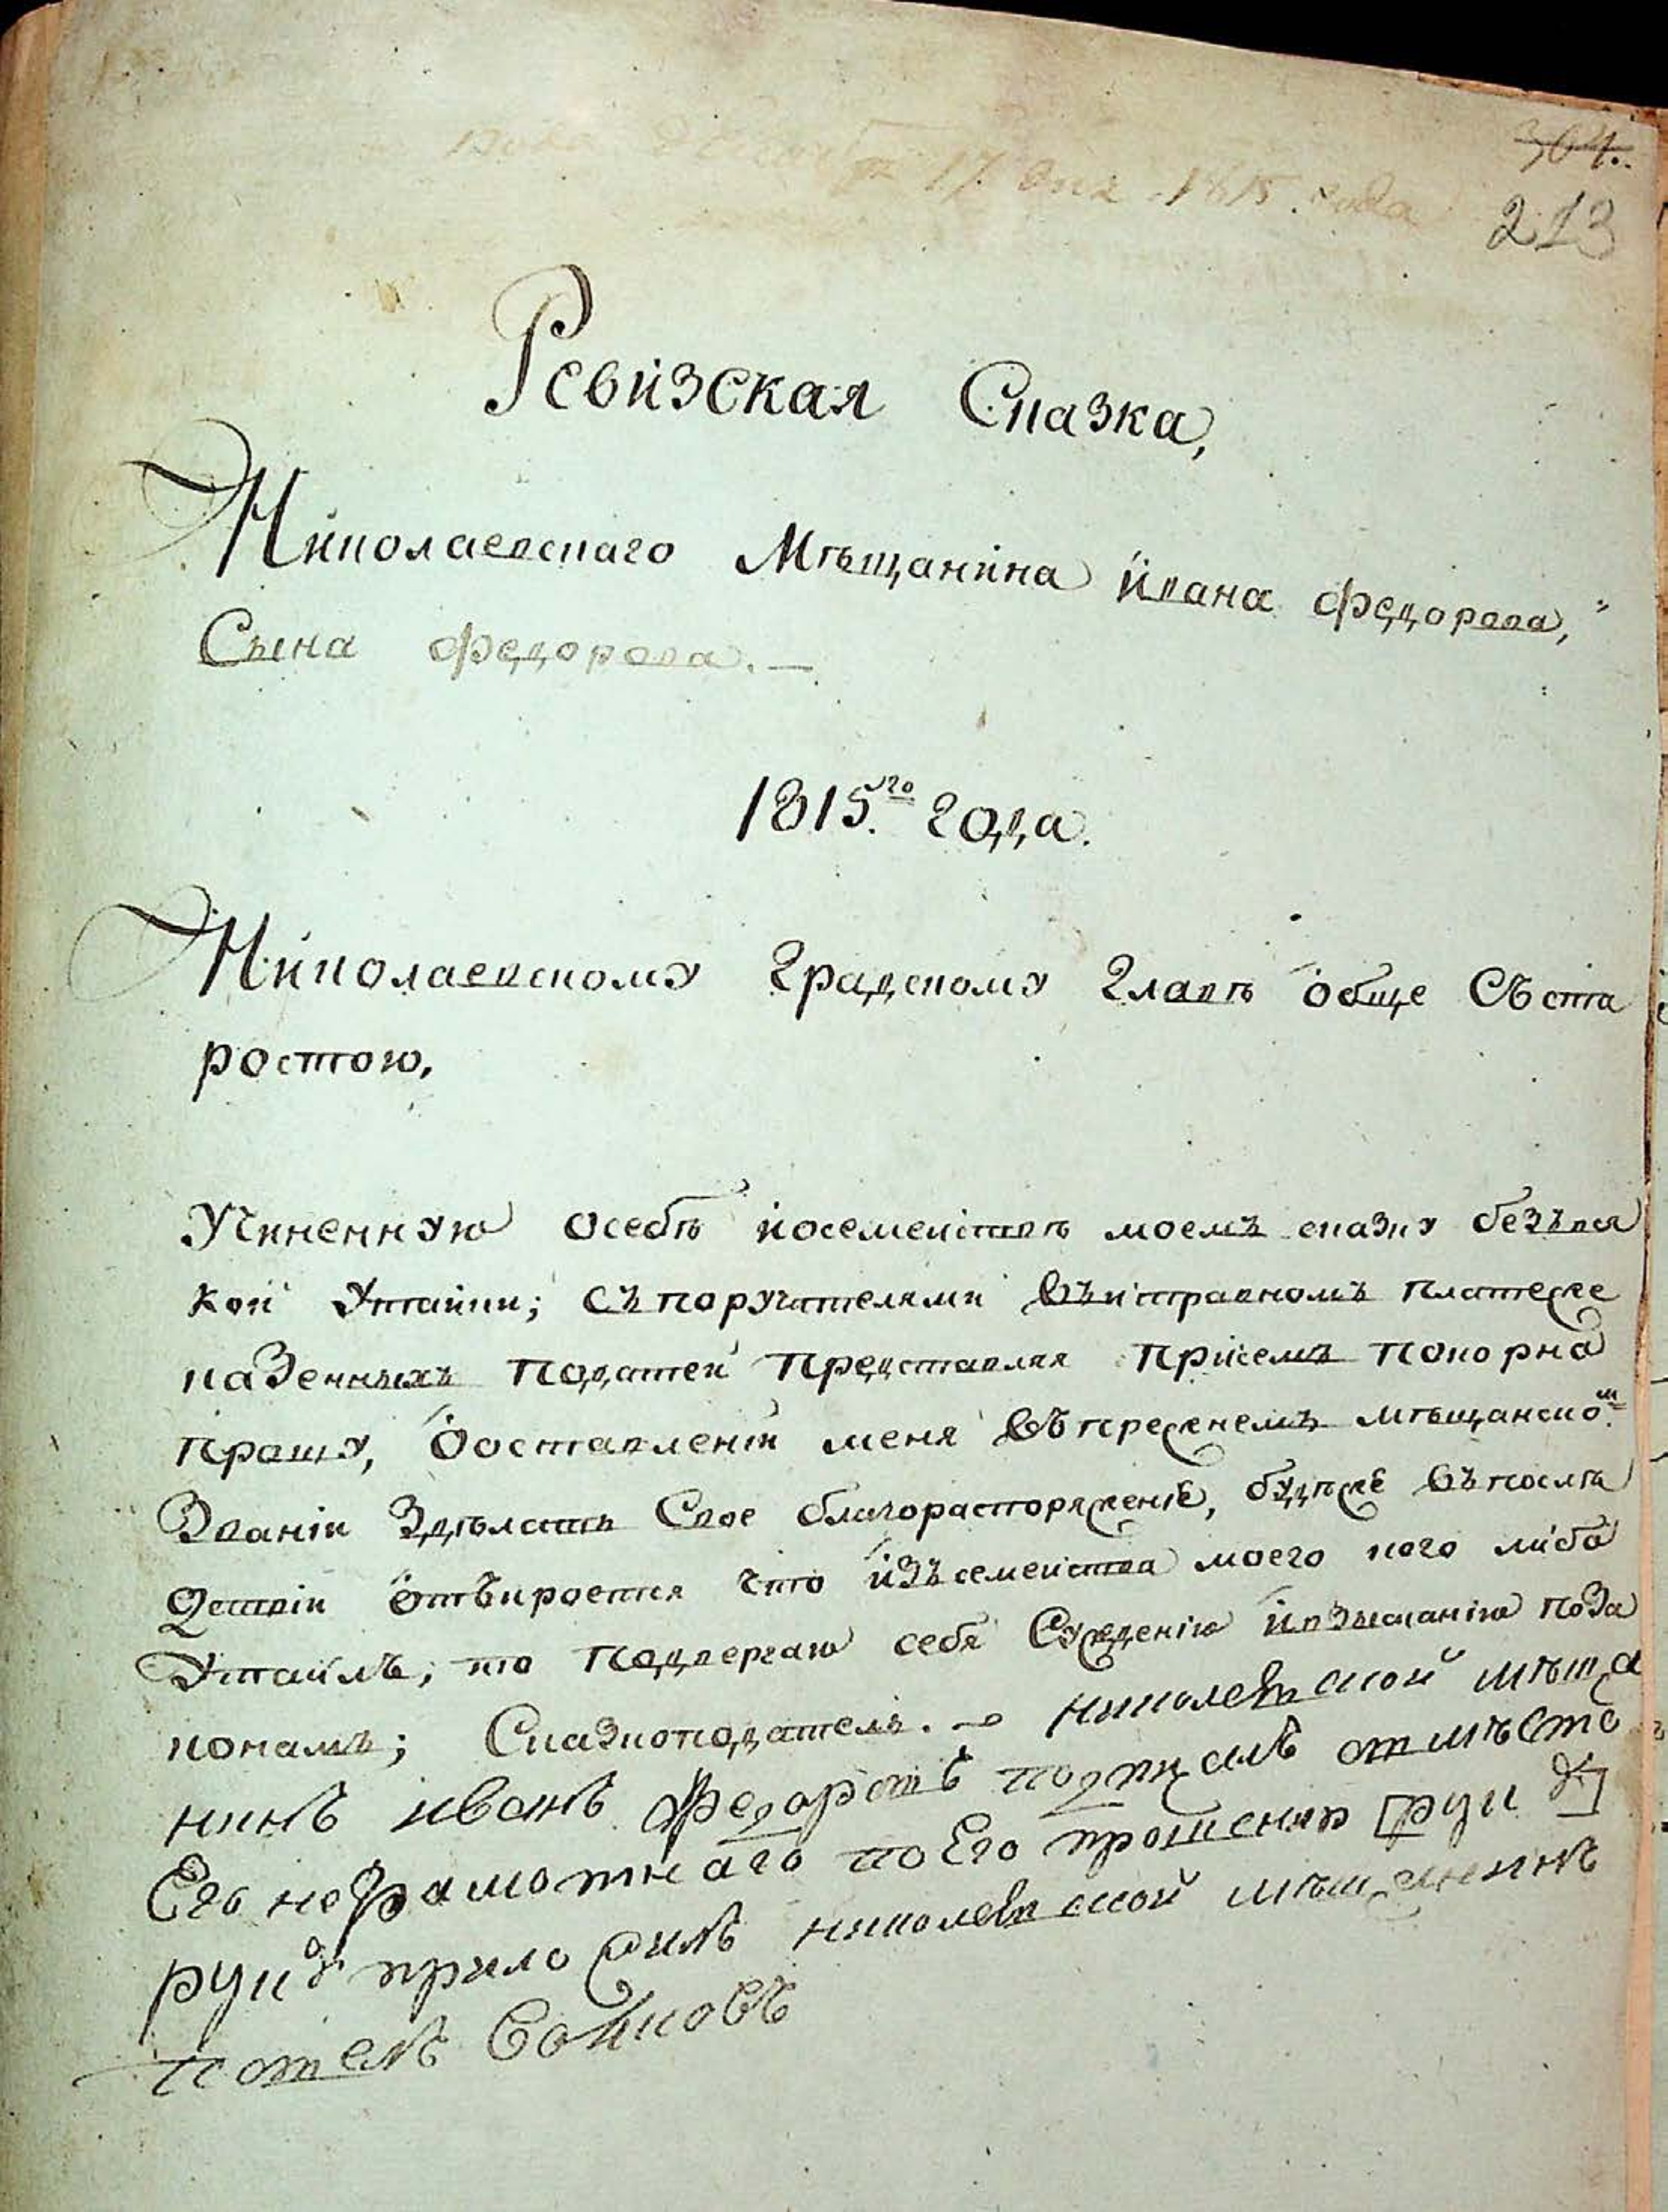 17 дня 1815. года
304.
213
Ревизская Сказка,
Николаевскаго Мѣщанина Ивана Федорова,
Сына Федорова. —
1815.го года.
Николаевскому Градскому Главѣ обще Съ ста
ростою,
Учиненную осебѣ иосемействѣ моемъ сказку безъвся
кой Утайки; съпоручителями въисправномъ платеже
казенныхъ податей представляя присемъ покорно
прошу, Ооставленіи меня въпрежнемъ мѣщанском
Званіи Здѣлать Свое благоразпоряженіе, будеже въпослѣ
дствіи откроется что изъсемейства моего кого либо
Утаилъ, то подвергаю себя Сужденію ивзысканію поЗа
конамъ; Сказкоподатель. — николевской мѣща
нинъ иванъ федоровъ подписалъ
Его неграмотнаго по Его прошению [руку]
руку приложилъ николевской мѣщенинъ